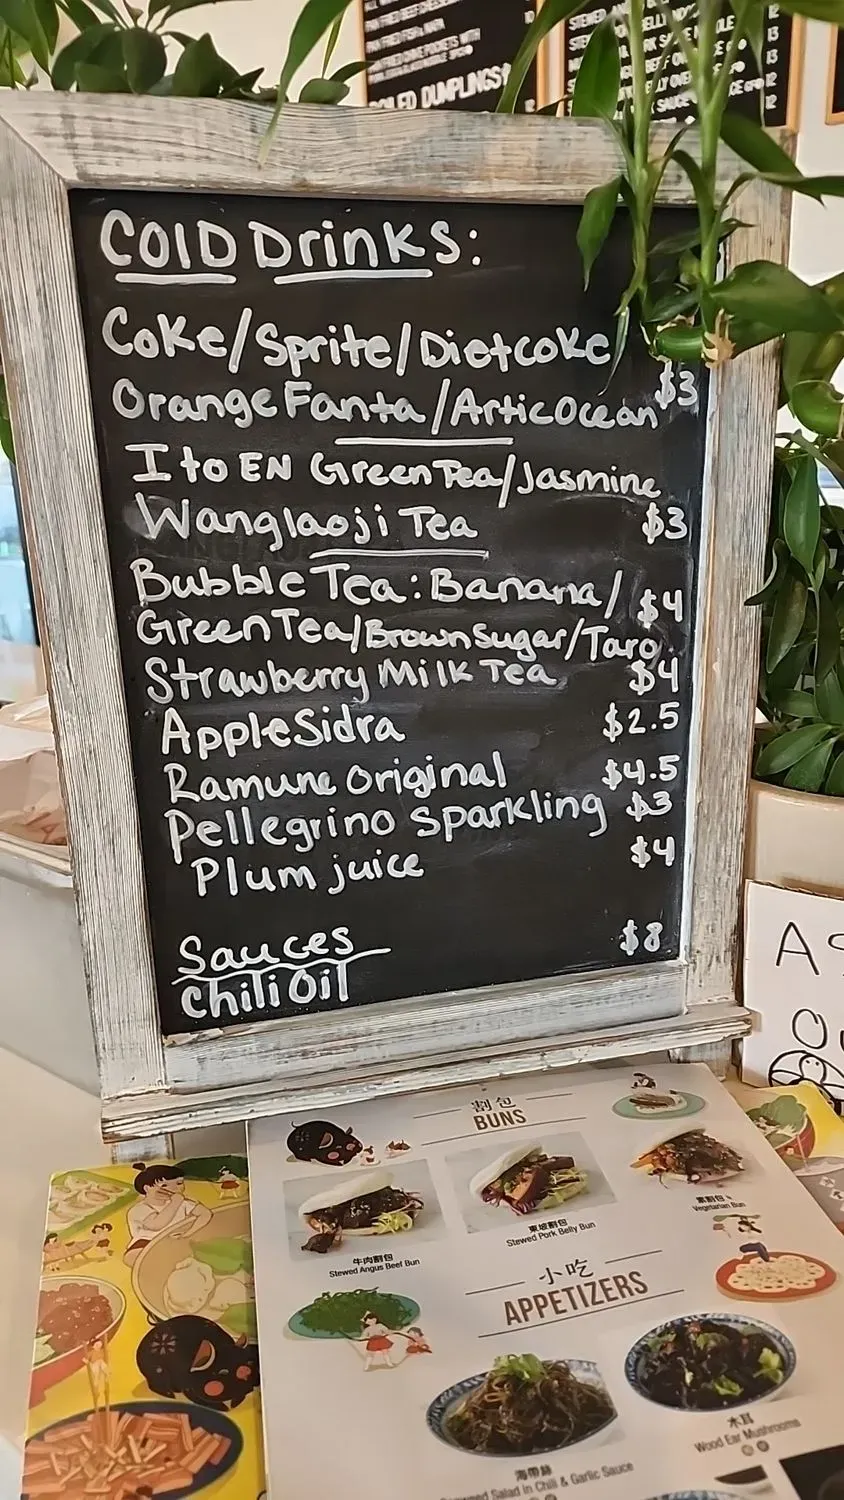 BOILED DUMPLINGS
COLD Drinks:
Coke/Sprite/Dietcoke
$3
Orange Fanta/Artic Ocean
Ito EN Green Tea/Jasmine
Wanglaoji Tea $3
Bubble Tea: Banana/ $4
Green Tea/Brown Sugar/Taro
Strawberry Milk Tea $4
Apple Sidra $2.5
Ramune original $4.5
Pellegrino Sparkling $3
Plum juice $4
Sauces $8
Chili Oil
割包
BUNS
牛肉割包
Stewed Angus Beef Bun
東坡割包
Stewed Pork Belly Bun
素割包
Vegetarian Bun
小吃
APPETIZERS
海帶絲
Salad in Chili & Garlic Sauce
木耳
Wood Ear Mushrooms